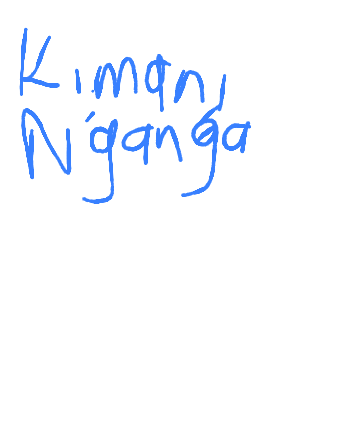 Kimani
N'ganga